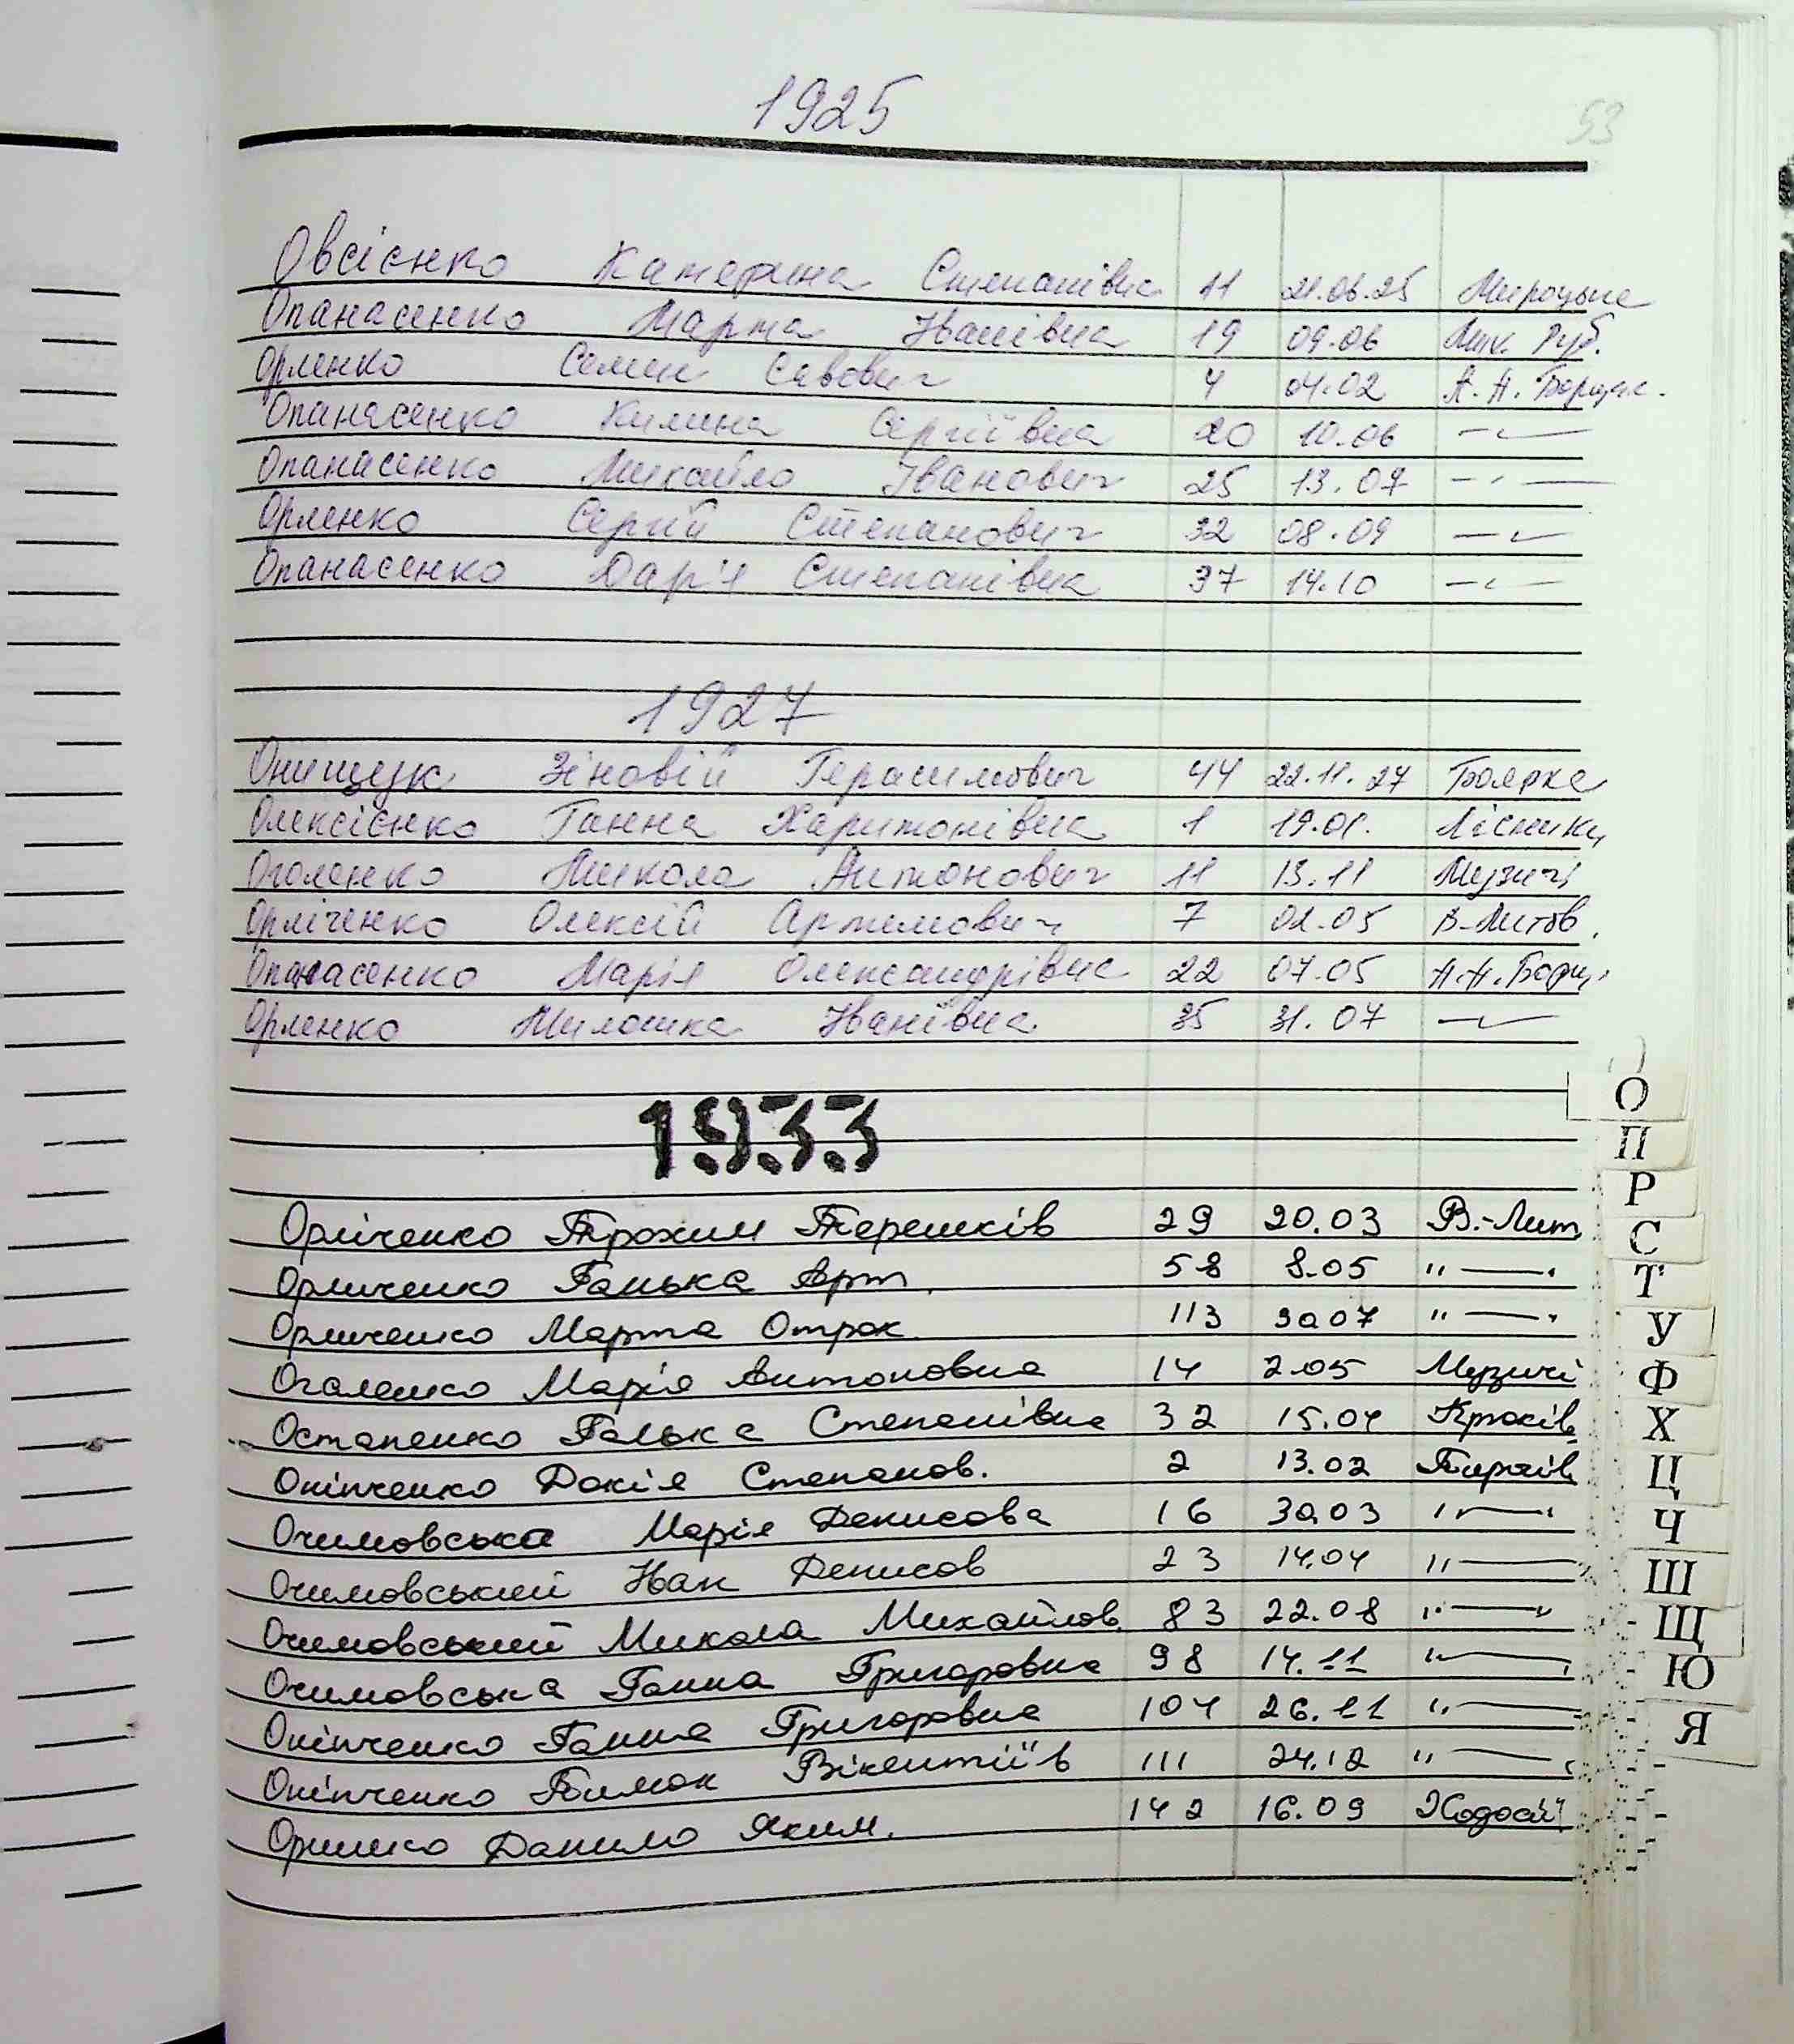 1925
53
Овсієнко Катерина Степанівна 11 21.06.25 Мироцьке
Опанасенко Марта Іванівна 19 09.06 Мик. Руб.
Орленко Семен Савович 4 04.02 П. П. Борщаг.
Опанасенко Килина Сергіївна 20 10.06 —〃—
Опанасенко Михайло Іванович 25 13.07 —〃—
Орленко Сергій Степанович 32 08.09 —〃—
Опанасенко Дар'я Степанівна 37 14.10 —〃—
1927
Онищук Зіновій Герасимович 44 22.11.27 Боярка
Олексієнко Ганна Харитонівна 1 19.01. Лісники
Оголенко Микола Антонович 11 13.11 Музичі
Орліченко Олексій Артемович 7 02.05 В-Литов.
Опанасенко Марія Олександрівна 22 07.05 П.П. Борщ.
Орленко Милошка Іванівна 35 31.07 —〃—
1933
Орліченко Трохим Терешків 29 20.03 В.-Лит
Орличенко Ганька Арт. 58 8.05 "—"
Орличенко Марта Отрок 113 30.07 "—"
Оголенко Марія Антоновна 14 2.05 Музичі
Остапенко Галька Степанівна 32 15.04 Крюків
Оніпченко Докія Степанов. 2 13.02 Гирків
Очимовська Марія Денисова 16 30.03 "—"
Очимовський Іван Денисов 23 14.04 "—"
Очимовський Микола Михайлов. 83 22.08 "—"
Очимовська Ганна Григоровна 98 14.11 "—"
Оніпченко Ганна Григоровна 104 26.11 "—"
Оніпченко Тимок Вікентіїв 111 24.12 "—"
Оришко Данило Яким. 142 16.09 Ходосії
О
П
Р
С
Т
У
Ф
Х
Ц
Ч
Ш
Щ
Ю
Я